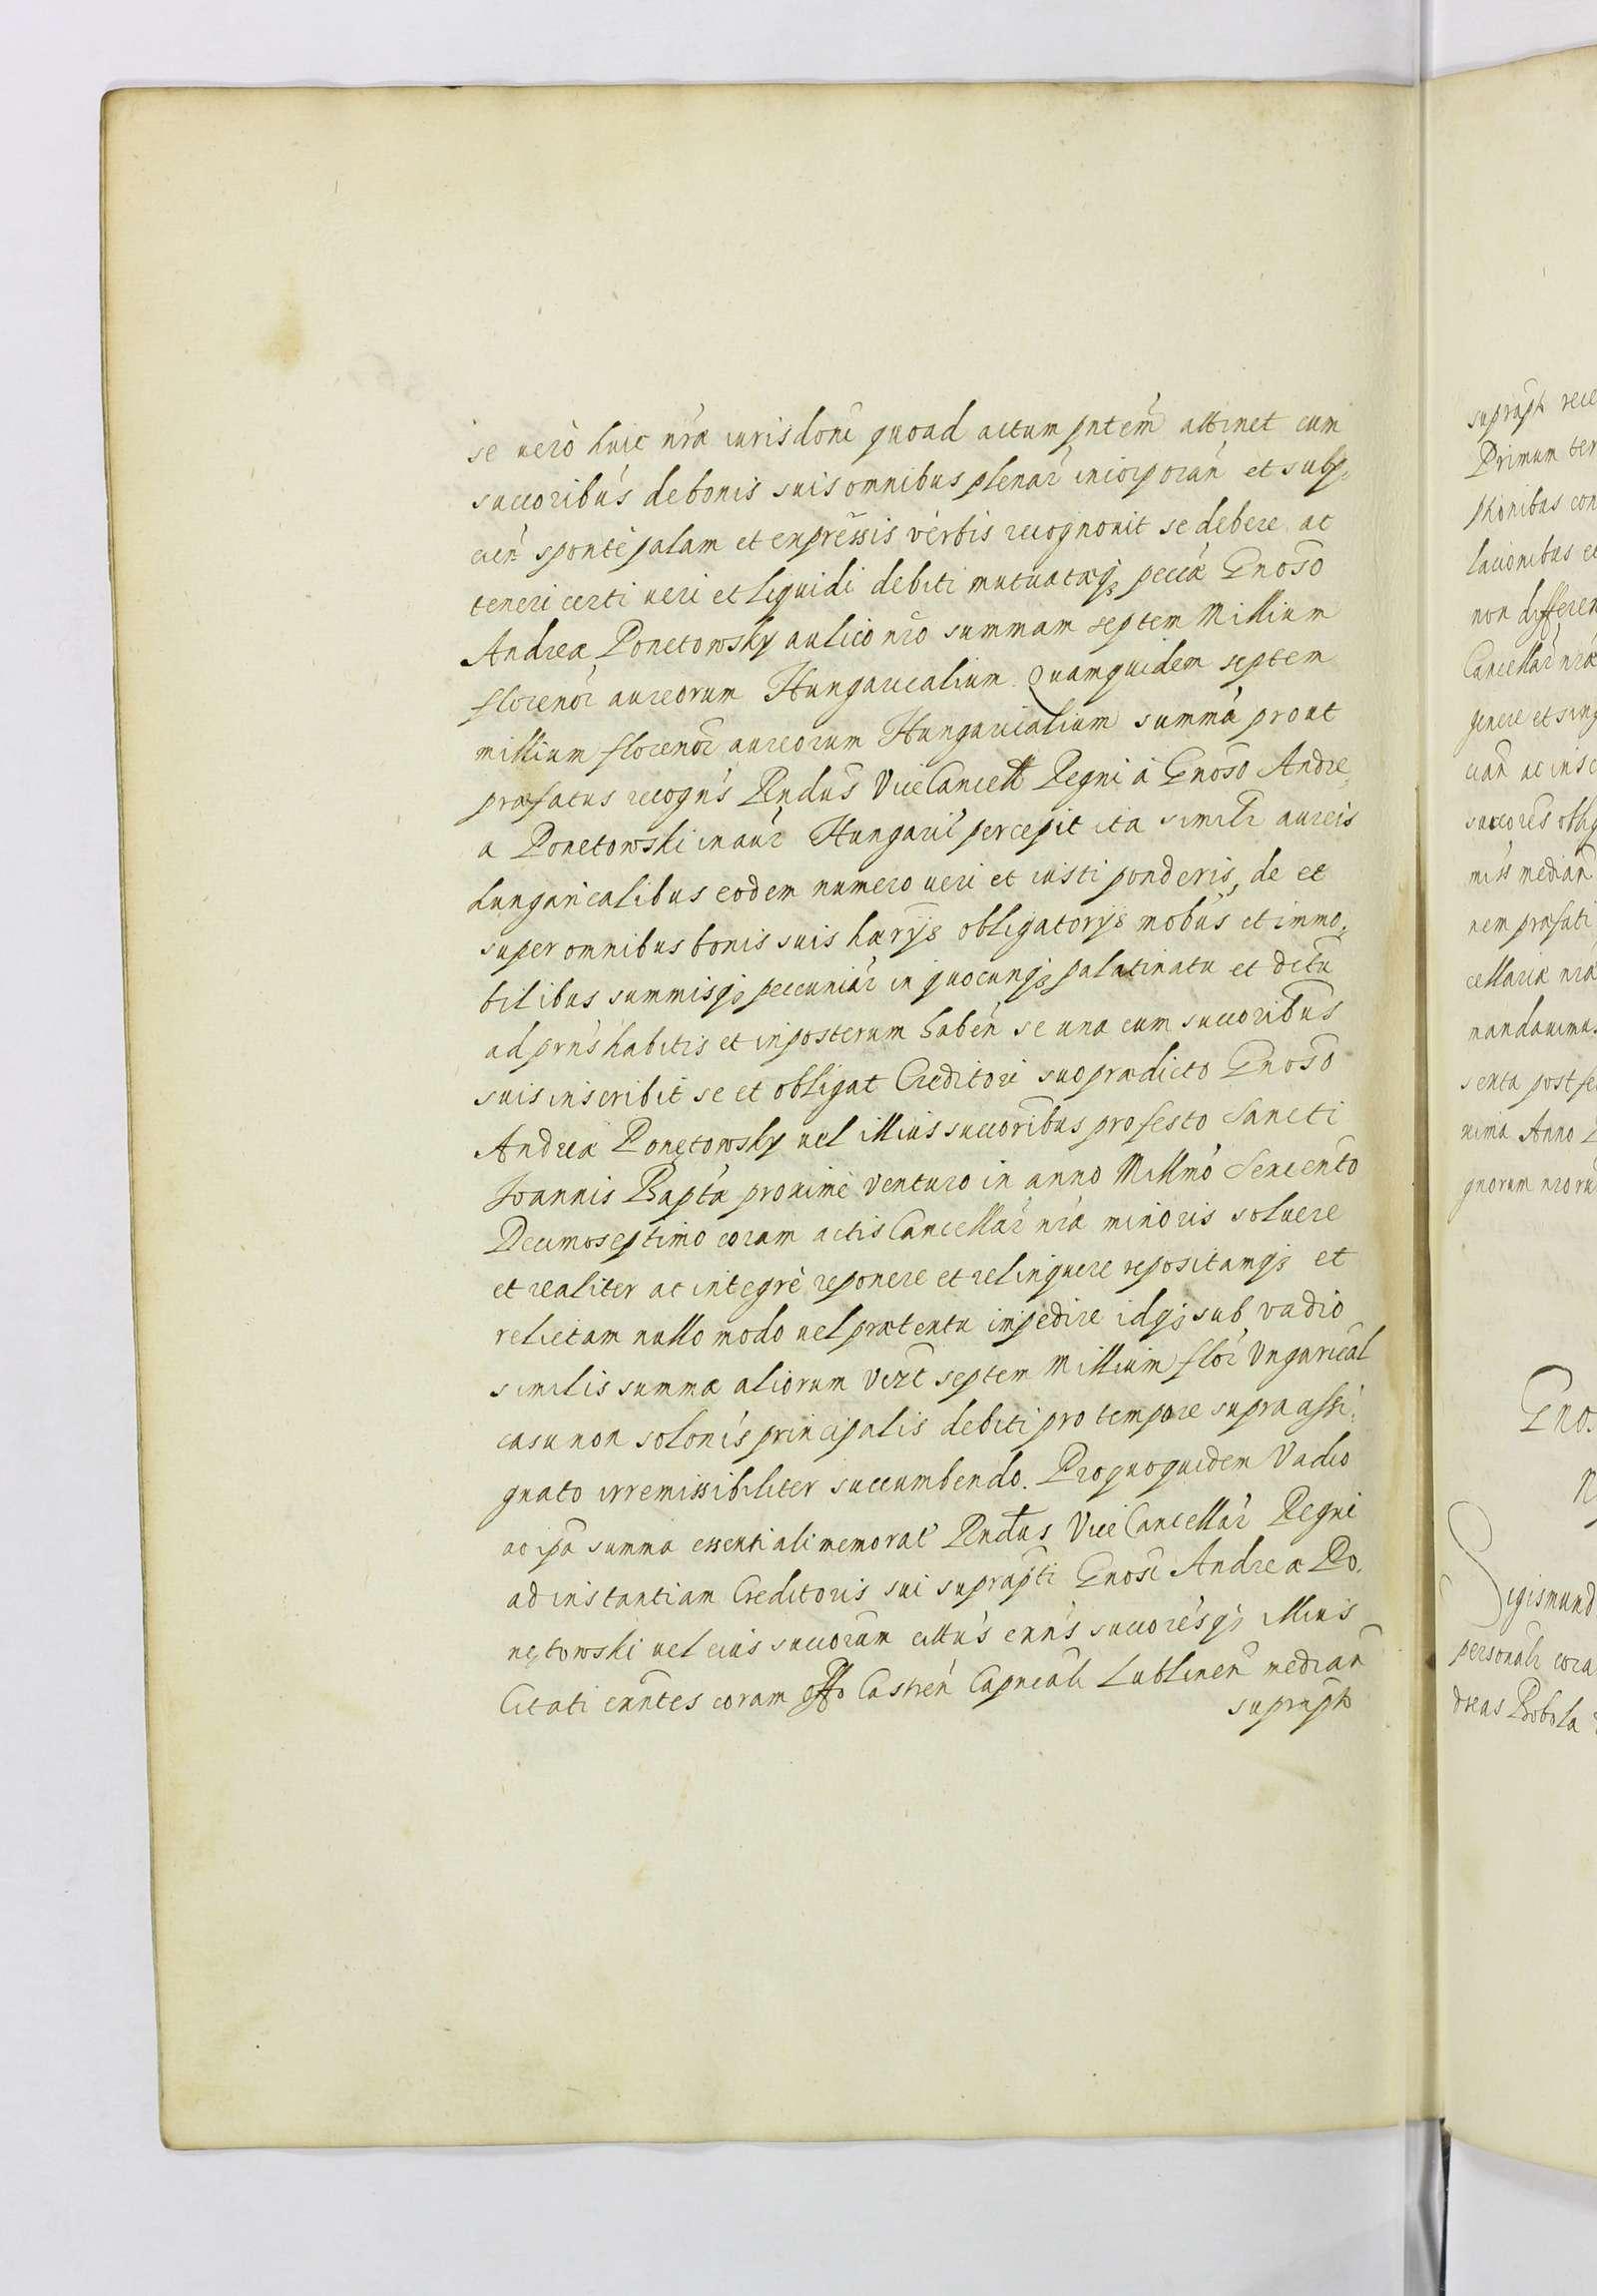 se uero huic nrae iurisdoni quoad actum pntem attinet cum
succoribus de bonis suis omnibus plenar incorporan et subij,
cien sponte palam et expressis verbis recognouit se debere ac
teneri certi ueri et liquidi debiti mutuataeqз pecciae Gnoso
Andreae Ponetowsky aulico nro summam septem Millium
florenor aureorum Hungaricalium. Quamquidem septem
millium florenor aureorum Hungaricalium summa prout
praefatus recogns Rndus ViceCancell Regni a Gnoso Andre,
a Ponetowski in aur Hungaril percepit ita simili aureis
hungaricalibus eodem numero ueri et iusti ponderis, de et
super omnibus bonis suis haerijs obligatorijs mobus et immo,
bilibus summisqз peccuniar in quocunqз palatinatu et dictu
ad prns habitis et inposterum haben se una cum succoribus
suis inscribit se et obligat Creditori suo praedicto Gnoso
Andreae Ponętowsky uel illius succoribus pro festo Sancti
Joannis Baptae proxime venturo in anno Millmo Sexcento
Decimoseptimo coram actis Cancellar nrae minoris soluere
et realiter ac integre reponere et relinquere repositamqз et
relictam nullo modo uel praetextu impedire idqз sub vadio
similis summae aliorum vizt septem Millium flor Vngarical
casu non solonis principalis debiti pro tempore supra assi,
gnato irremissibiliter succumbendo. Pro quoquidem Vadio
ac ipa summa essentiali memorat Rndus ViceCancellar Regni
ad instantiam Creditoris sui suprapti Gnosi Andreae Po,
nętowski uel eius succorum cittus exns succoresqз illius
Citati exntes coram Offo Castren Capneali Lublinen median
suprapto
suprapt rece
Primum ter
ptionibus con
lacionibus et
non differen
Cancellar nrae
genere et sing
cian ac insc
succores oblig
miss median
nem praefati
cellariae nrae
mandauimus
sexta post fe
nima Anno
gnorum nroru
Gno.
Sigismund
personali cora
dreas Bobola